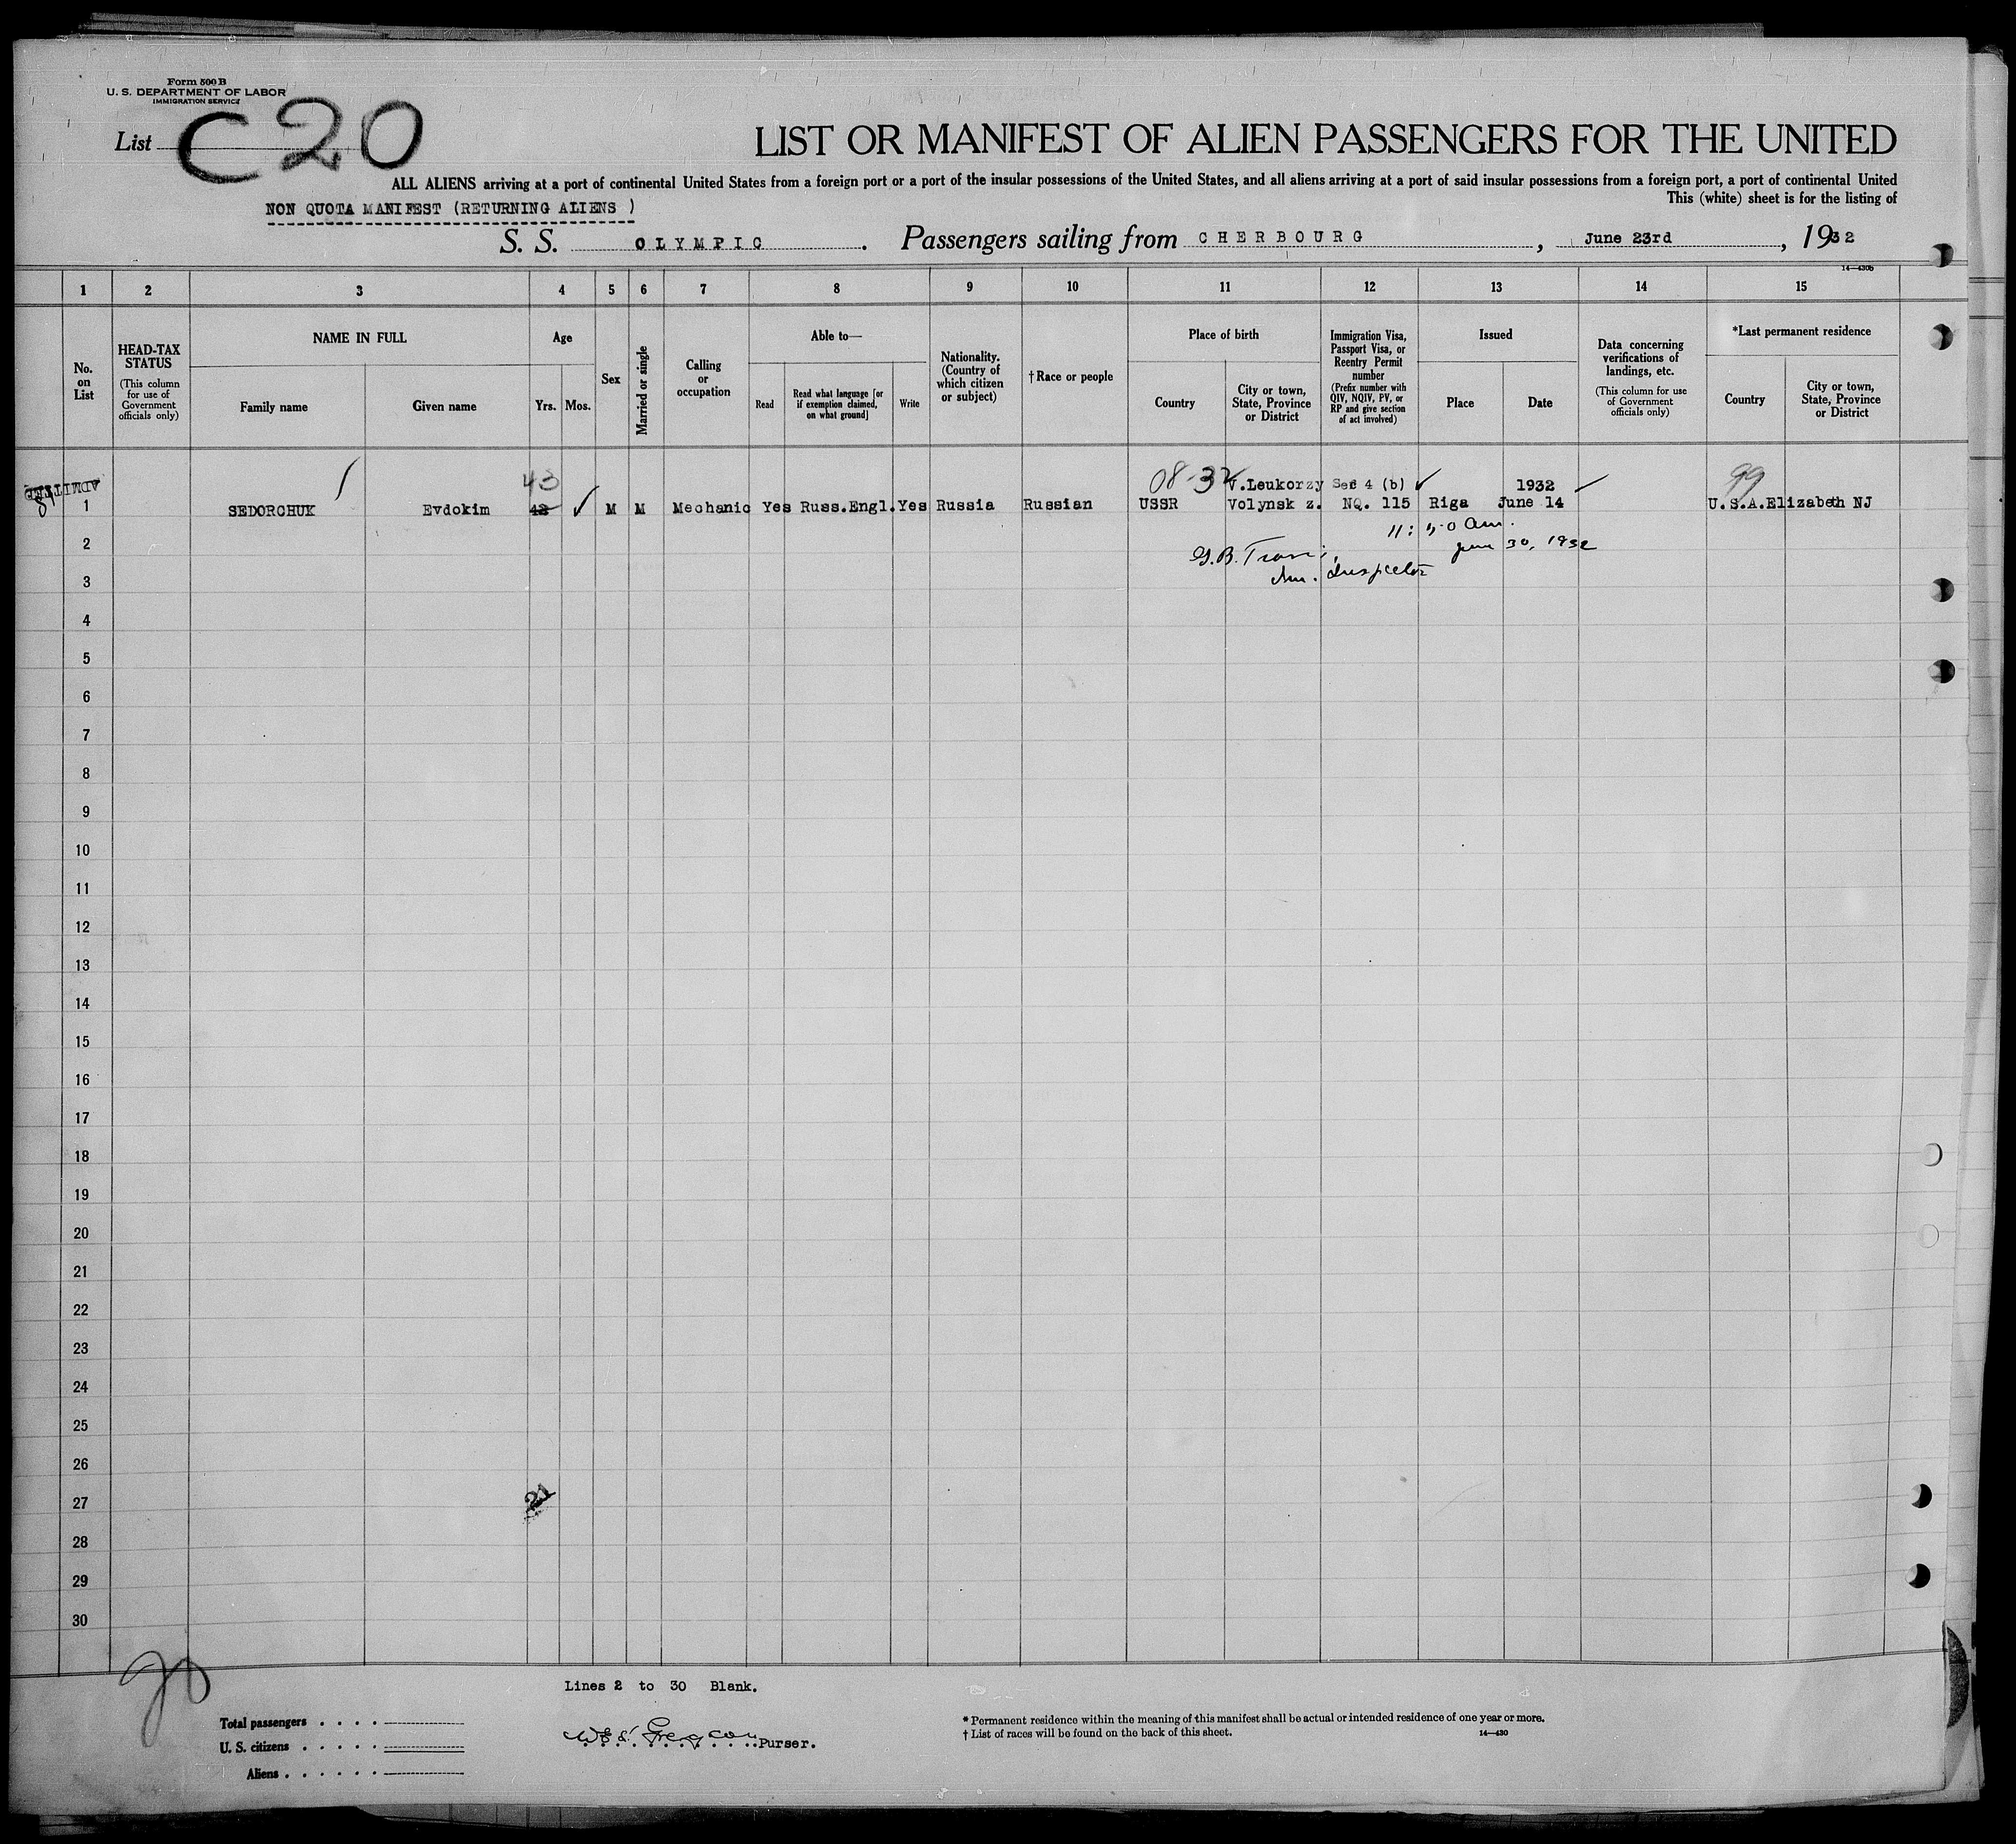 Form 500 B
U. S. DEPARTMENT OF LABOR
IMMIGRATION SERVICE
List C20
LIST OR MANIFEST OF ALIEN PASSENGERS FOR THE UNITED
ALL ALIENS arriving at a port of continental United States from a foreign port or a port of the insular possessions of the United States, and all aliens arriving at a port of said insular possessions from a foreign port, a port of continental United
NON QUOTA MANIFEST (RETURNING ALIENS )
This (white) sheet is for the listing of
S. S. OLYMPIC . Passengers sailing from CHERBOURG , June 23rd , 1932
14—430b
1 2 3 4 5 6 7 8 9 10 11 12 13 14 15
No. on List
HEAD-TAX STATUS (This column for use of Government officials only)
NAME IN FULL
Family name
Given name
Age
Yrs. Mos.
Sex
Married or single
Calling or occupation
Able to—
Read
Read what language [or if exemption claimed, on what ground]
Write
Nationality. (Country of which citizen or subject)
† Race or people
Place of birth
Country
City or town, State, Province or District
Immigration Visa, Passport Visa, or Reentry Permit number (Prefix number with QIV, NQIV, PV, or RP and give section of act involved)
Issued
Place
Date
Data concerning verifications of landings, etc. (This column for use of Government officials only)
*Last permanent residence
Country
City or town, State, Province or District
ADMITTED
43 08-32 V.Leukorzy Sec 4 (b) 1932 99
1 SEDORCHUK Evdokim 42 M M Mechanic Yes Russ.Engl. Yes Russia Russian USSR Volynsk z. NQ. 115 Riga June 14 U.S.A. Elizabeth NJ
11:50 am.
2 June 30, 1932
G.B.
3 Im. Inspector
4
5
6
7
8
9
10
11
12
13
14
15
16
17
18
19
20
21
22
23
24
25
26
27 21
28
29
30
20
Lines 2 to 30 Blank.
Total passengers . . . .
U. S. citizens . . . . .
Aliens . . . . . .
Purser.
* Permanent residence within the meaning of this manifest shall be actual or intended residence of one year or more.
† List of races will be found on the back of this sheet. 14—430